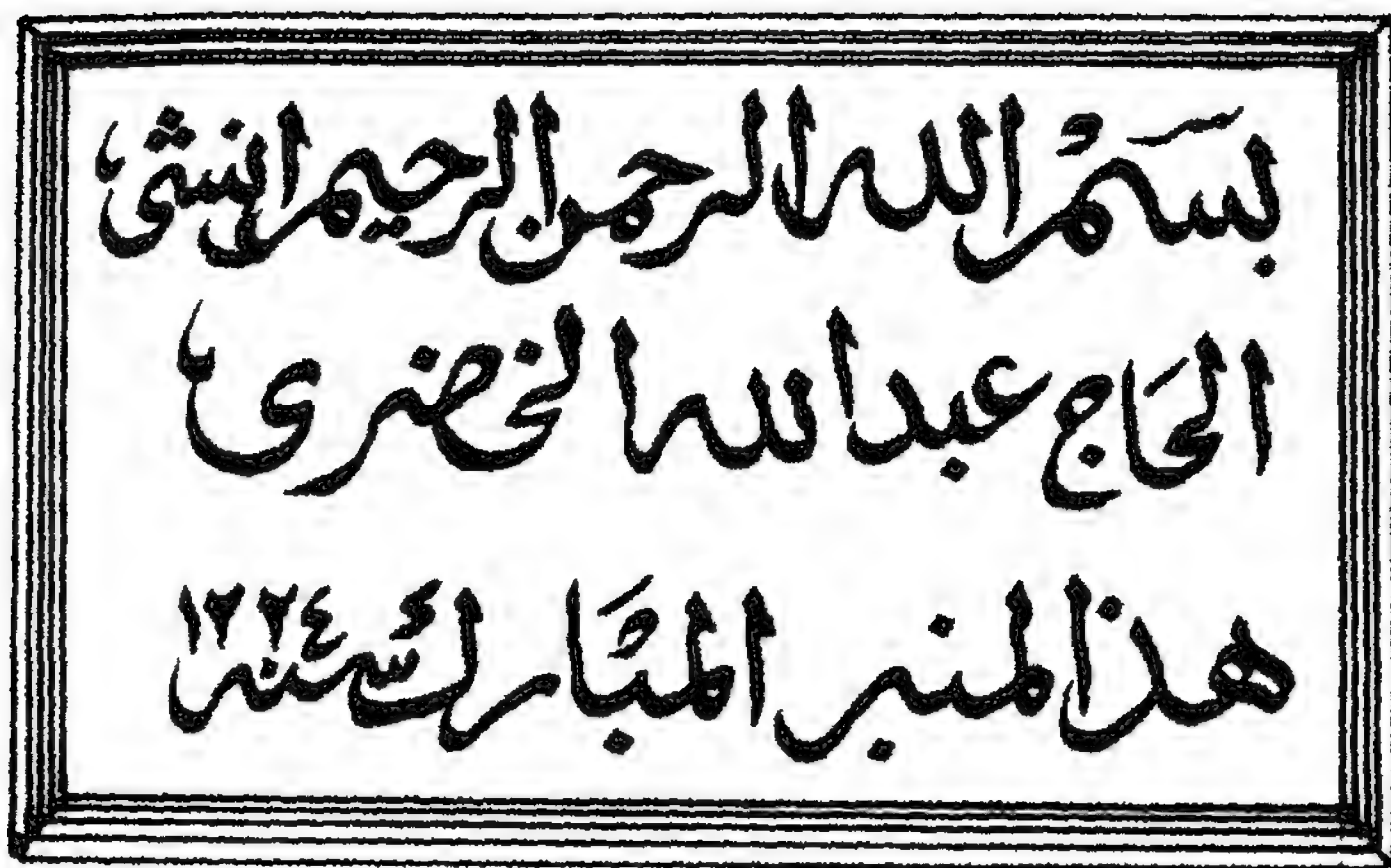 بسم الله الرحمن الرحيم انشئ
الحاج عبدالله الخضري
هذا لمنبر المبارك سنه ١٢٢٤